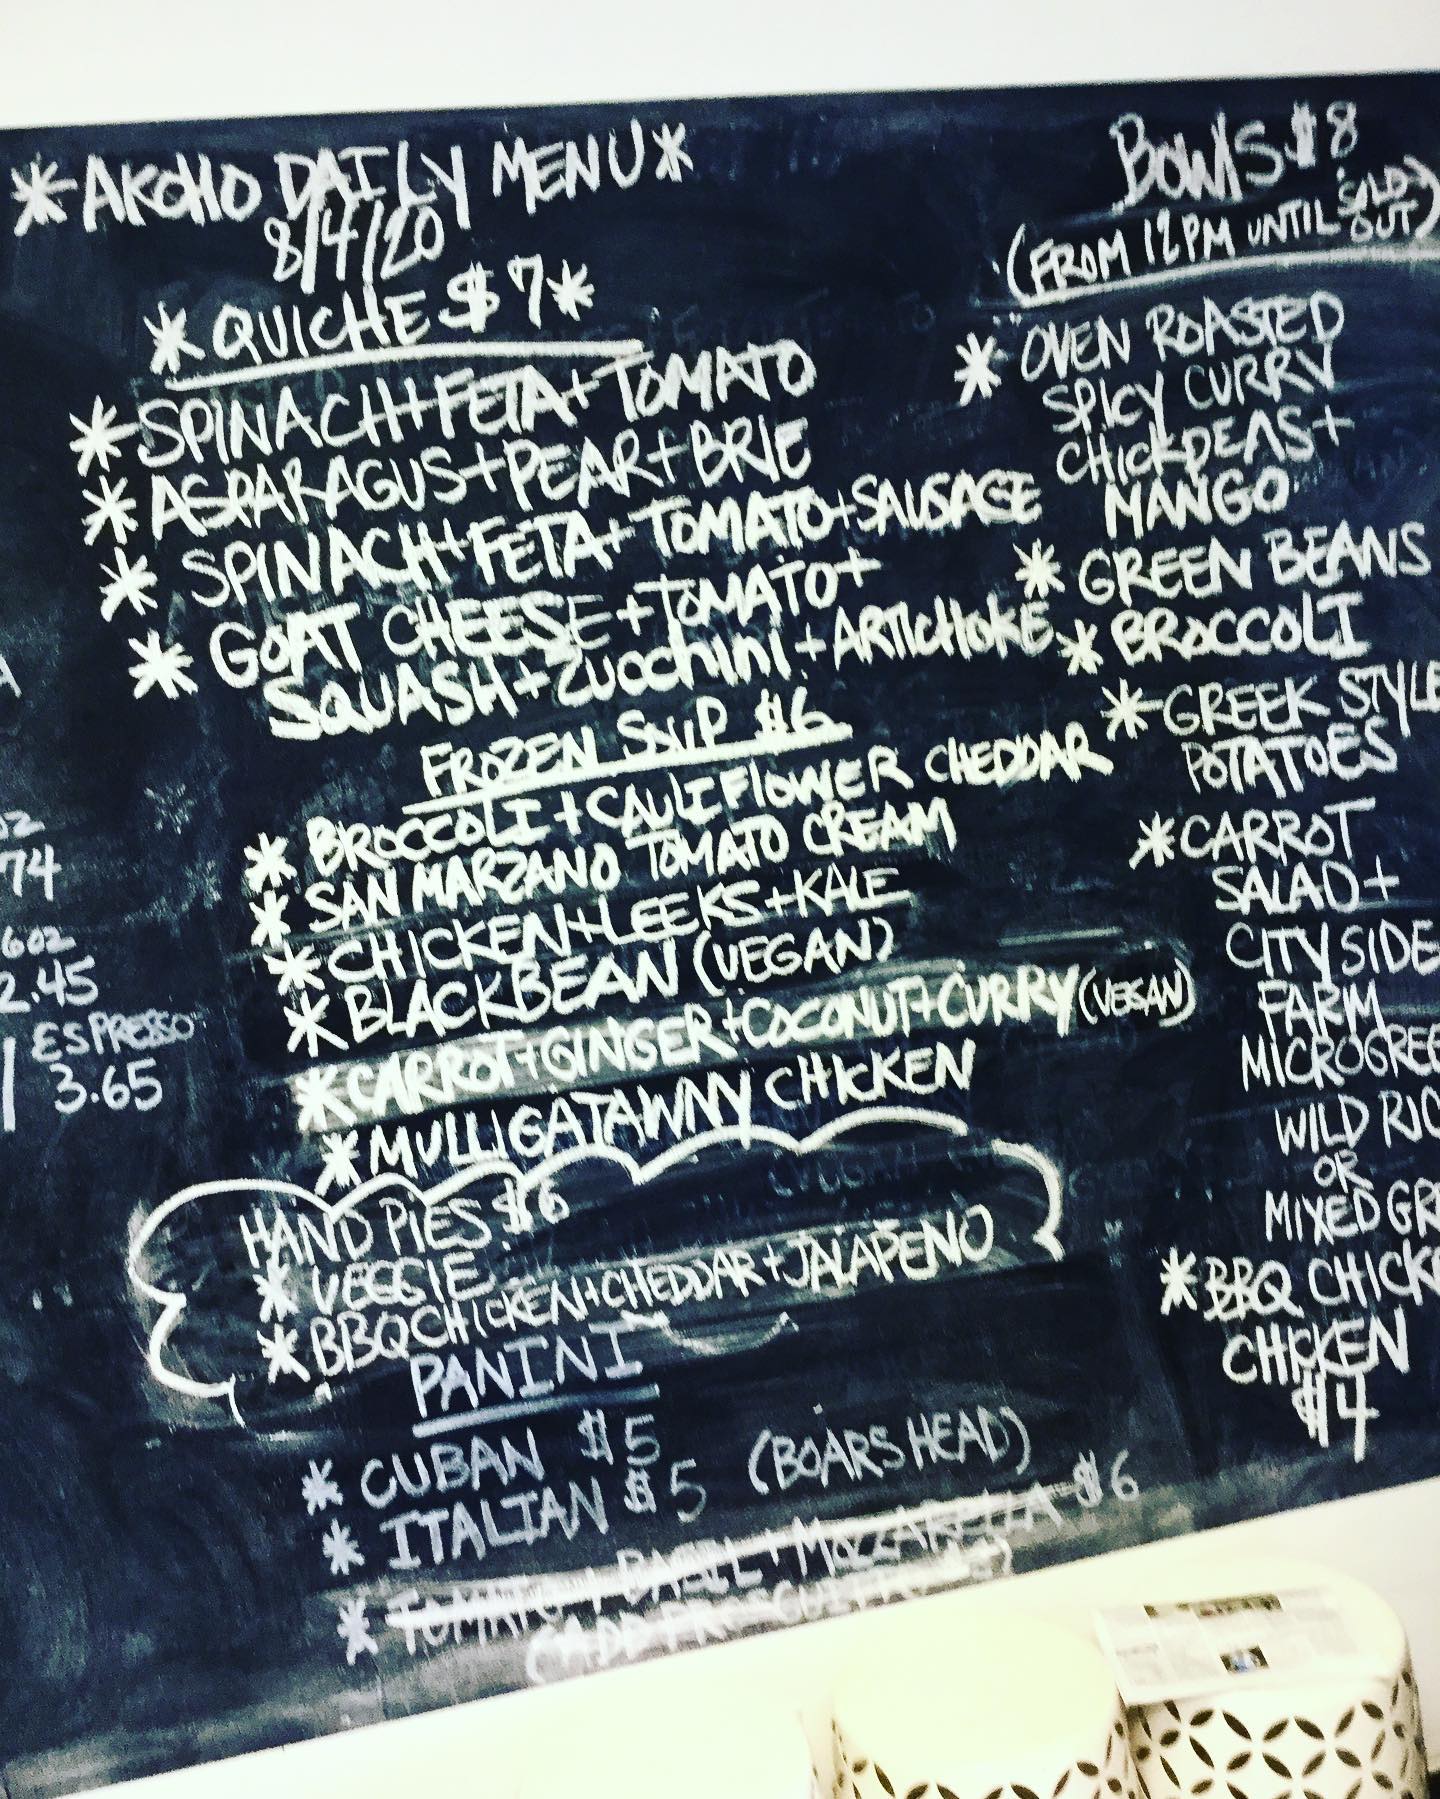 *AKOHO DAILY MENU*
8/4/20
*QUICHE $7*
*SPINACH+FETA+TOMATO
*ASPARAGUS+PEAR+BRIE
*SPINACH+FETA+TOMATO+SAUSAGE
*GOAT CHEESE+TOMATO+
SQUASH+ZUCCHINI+ARTICHOKE
FROZEN SOUP $6
*BROCCOLI+CAULIFLOWER CHEDDAR
*SAN MARZANO TOMATO CREAM
*CHICKEN+LEEKS+KALE
*BLACKBEAN (VEGAN)
*CARROT+GINGER+COCONUT+CURRY (VEGAN)
*MULLIGATAWNY CHICKEN
HAND PIES $6
*VEGGIE
*BBQ CHICKEN+CHEDDAR+JALAPENO
PANINI
*CUBAN $5
*ITALIAN $5 (BOARS HEAD)
*TOMATO+BASIL+MOZZARELLA $6
(ADD PROSCUITTO
BOWLS $8
(FROM 12PM UNTIL SOLD OUT)
*OVEN ROASTED
SPICY CURRY
CHICKPEAS+
MANGO
*GREEN BEANS
*BROCCOLI
*GREEK STYLE
POTATOES
*CARROT
SALAD+
CITY SIDE
FARM
MICROGREE
WILD RIC
OR
MIXED GR
*BBQ CHICKE
CHICKEN
$4
74
6oz
2.45
ESPRESSO
3.65